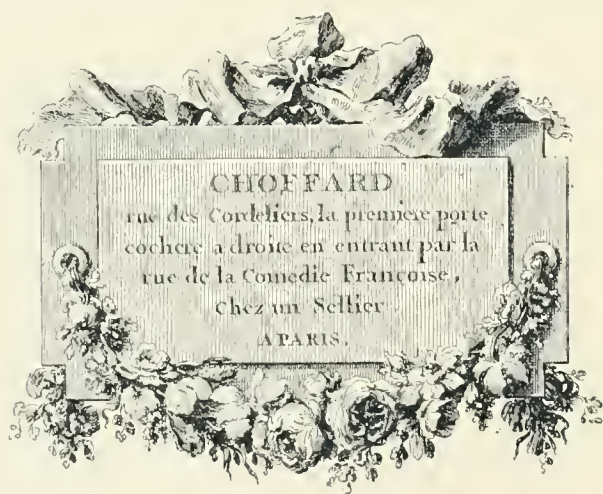 CHOFFARD
rue des Cordeliers, la premiere porte
cochere a droite en entrant par la
rue de la Comedie Françoise,
Chez un Sellier
A PARIS.